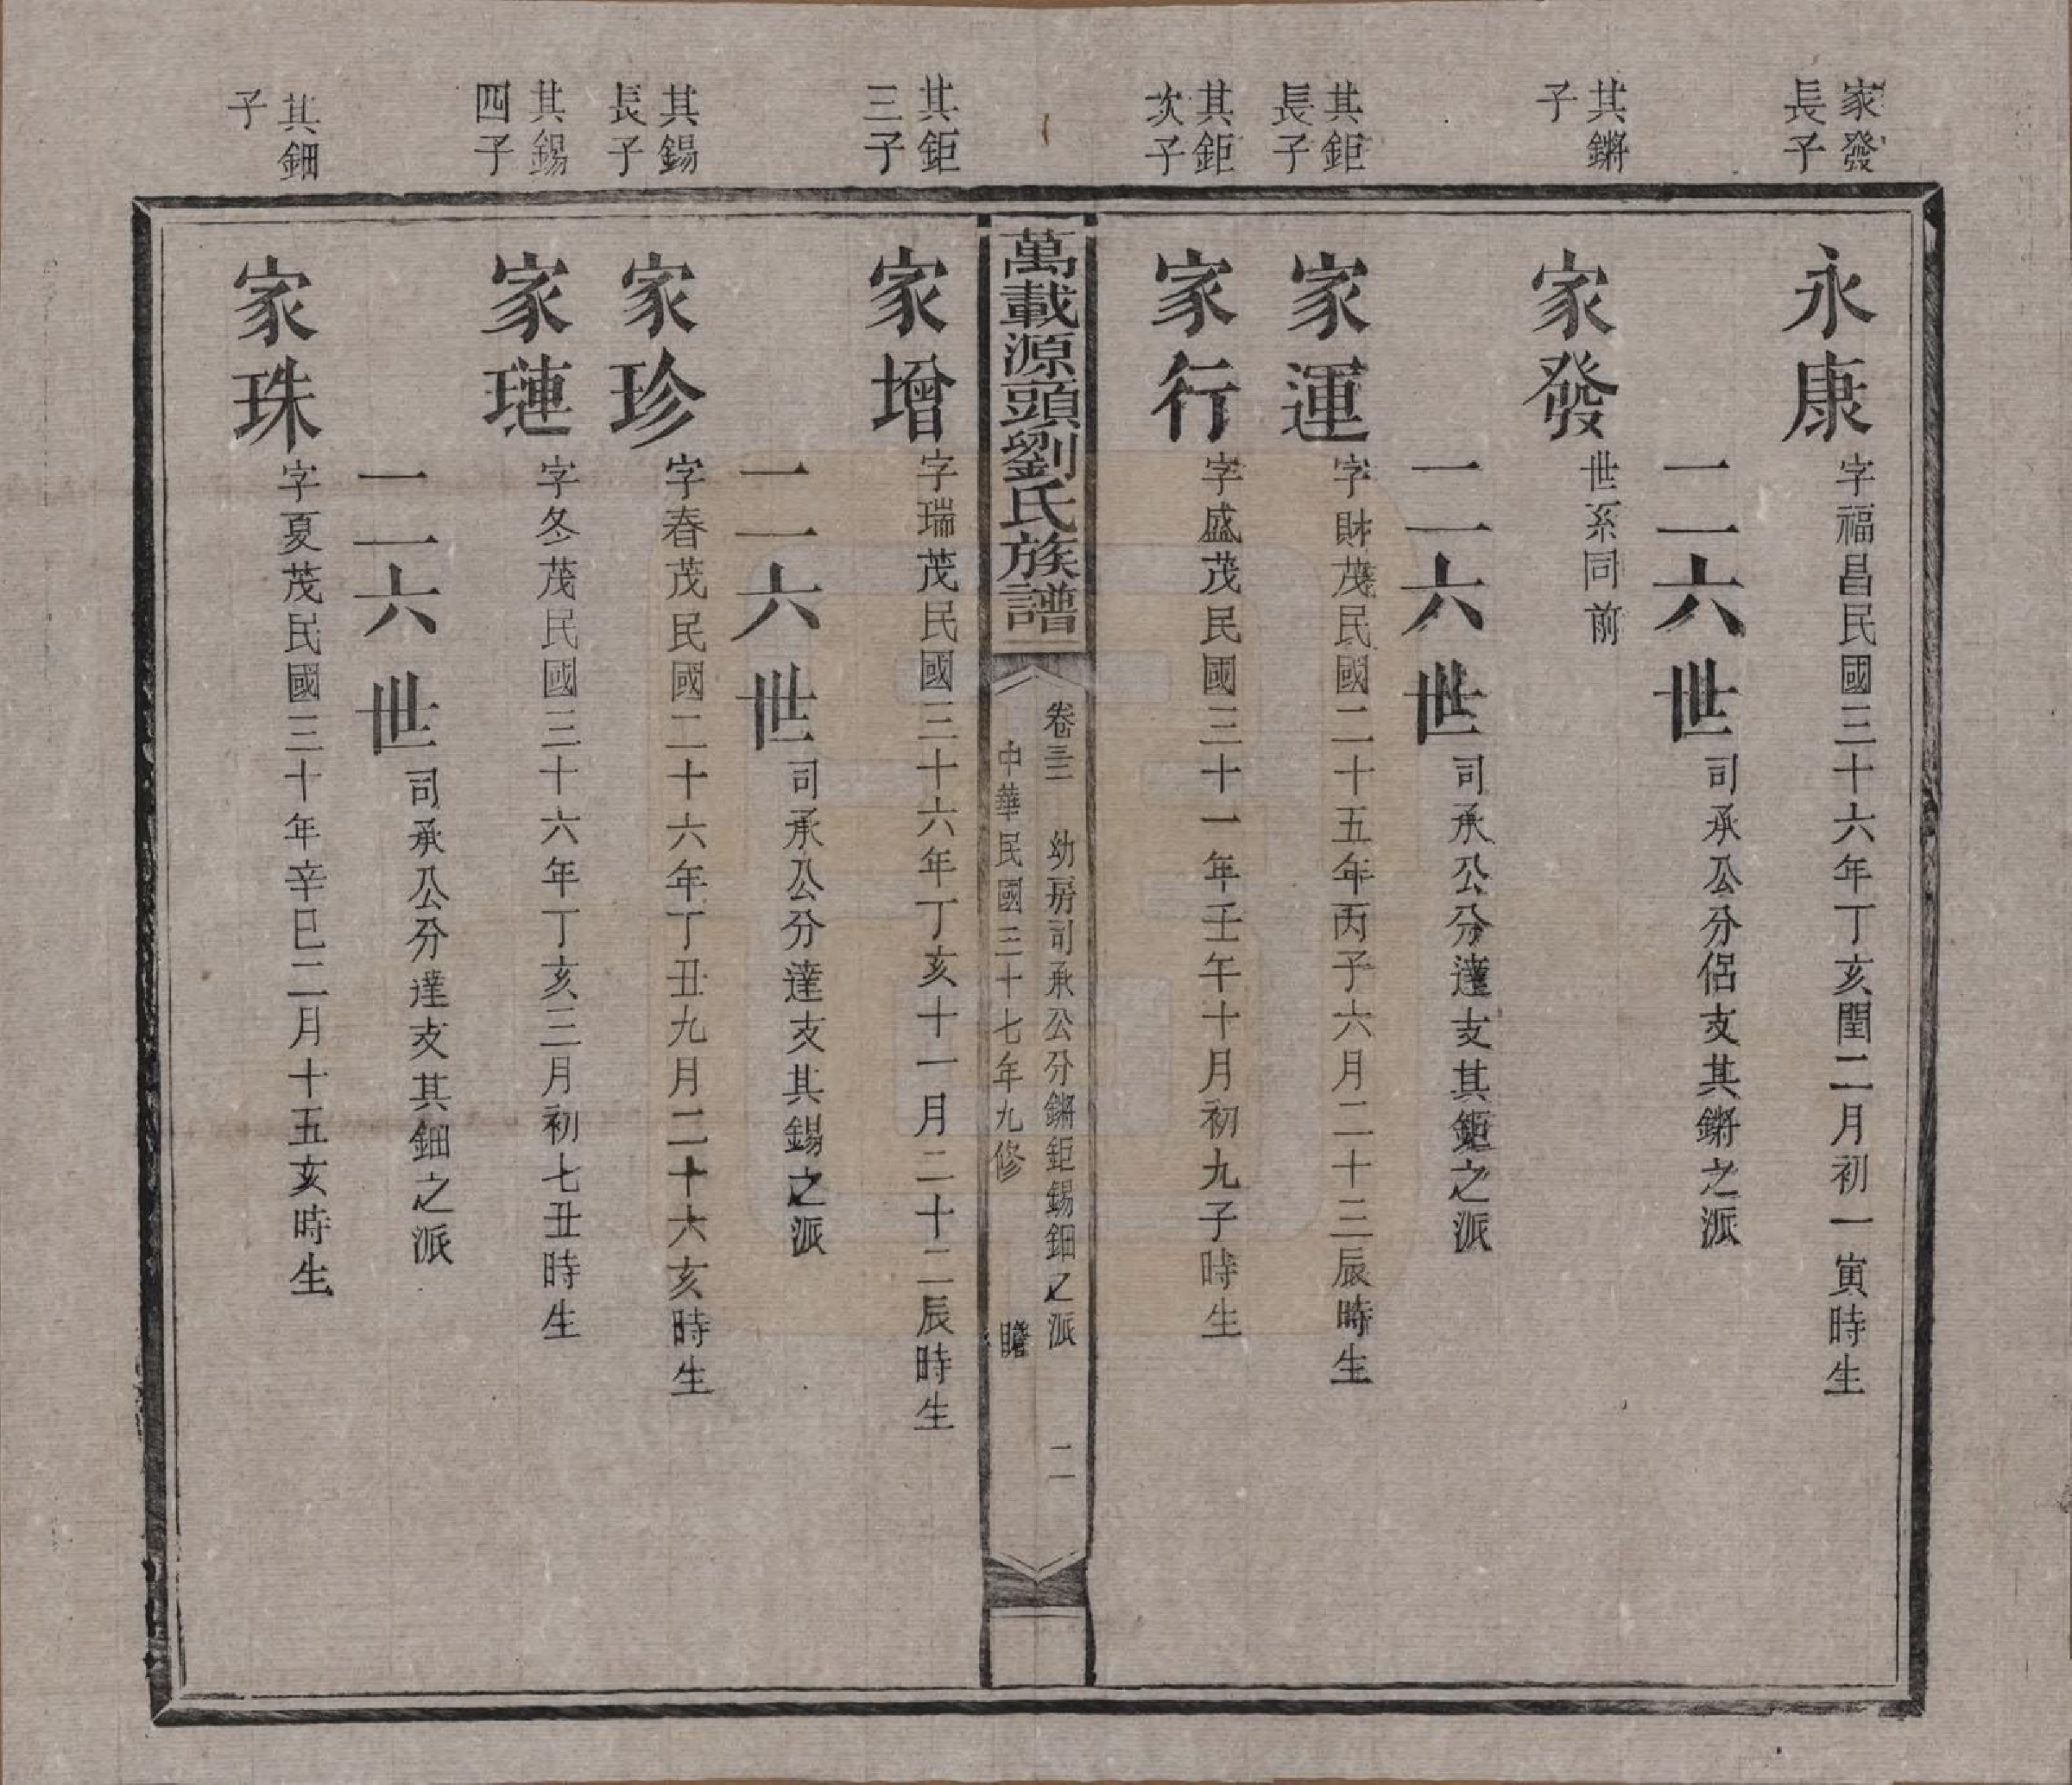 家發
長子
永康
字福昌民國三十六年丁亥閏二月初一寅時生
二一六世
司承公分侶支其鏘之派
其鏘
子
家發
世系同前
二一六世
司承公分達支其鉅之派
其鉅
長子
家運
字財茂民國二十五年丙子六月二十三辰時生
其鉅
次子
家行
字盛茂民國三十一年壬午十月初九子時生
萬載源頭劉氏族譜
幼房司承公分鏘鉅錫鈿之派
二
中華民國三十七年九修
瞻
其鉅
三子
家增
字瑞茂民國三十六年丁亥十一月二十二辰時生
二一六世
司承公分達支其錫之派
其錫
長子
家珍
字春茂民國二十六年丁丑九月二十六亥時生
其錫
四子
家璉
字冬茂民國三十六年丁亥三月初七丑時生
二一六世
司承公分達支其鈿之派
其鈿
子
家珠
字夏茂民國三十年辛巳二月十五亥時生